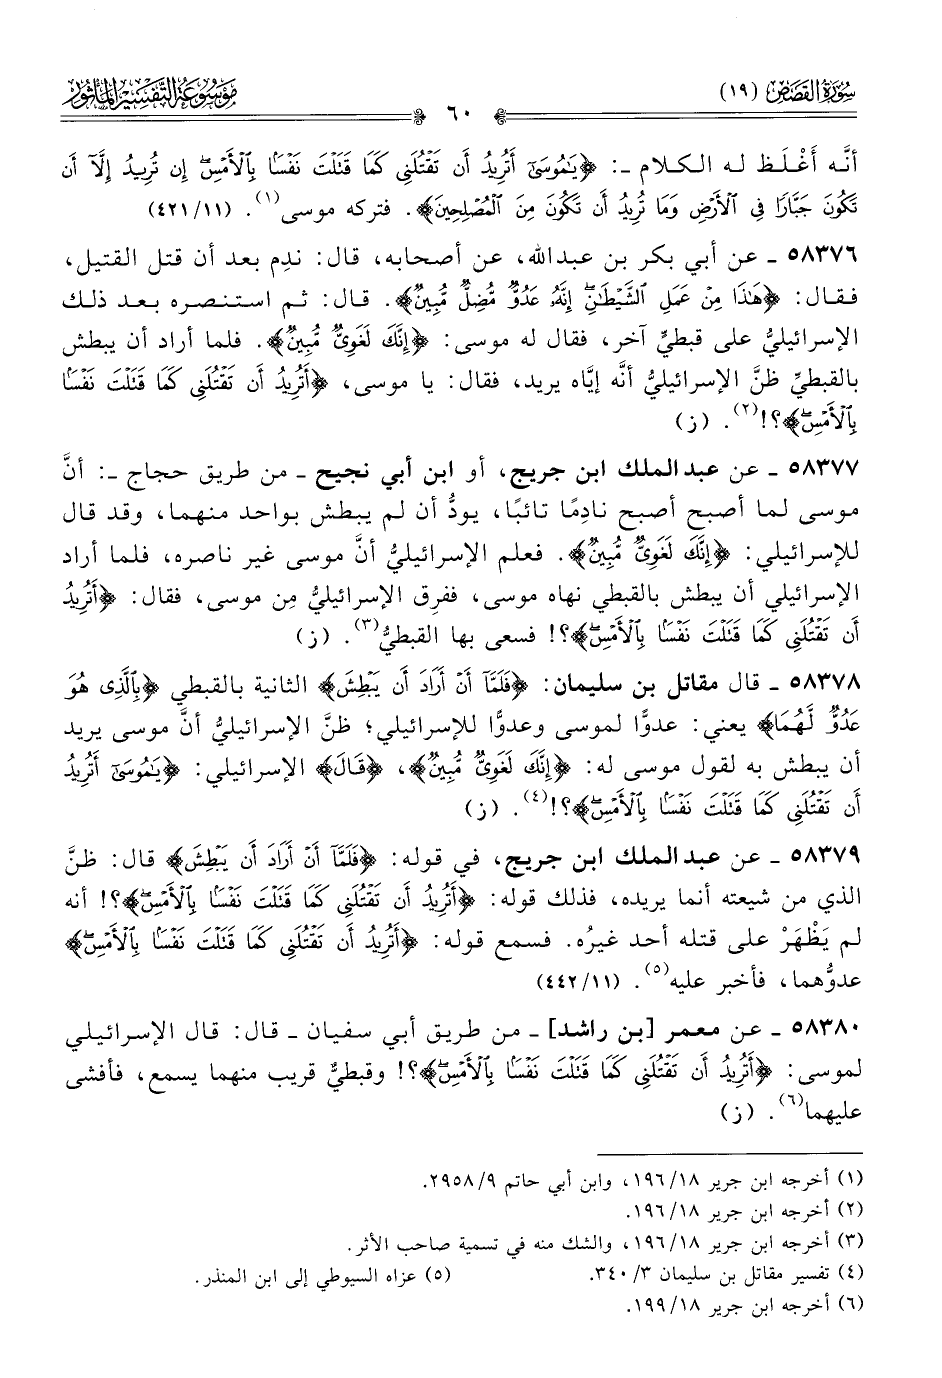 سورة القصص (١٩)
موسوعة التفسير المأثور
٦٠
أنَّه أَغْلَظ له الكلام ـ: ﴿يَٰمُوسَىٰٓ أَتُرِيدُ أَن تَقْتُلَنِي كَمَا قَتَلْتَ نَفْسًۢا بِٱلْأَمْسِۖ إِن تُرِيدُ إِلَّآ أَن
تَكُونَ جَبَّارًا فِي ٱلْأَرْضِ وَمَا تُرِيدُ أَن تَكُونَ مِنَ ٱلْمُصْلِحِينَ﴾. فتركه موسى(١). (٤٢١/١١)
٥٨٣٧٦ ـ عن أبي بكر بن عبدالله، عن أصحابه، قال: ندِم بعد أن قتل القتيل،
فقال: ﴿هَٰذَا مِنْ عَمَلِ ٱلشَّيْطَٰنِۖ إِنَّهُۥ عَدُوٌّ مُّضِلٌّ مُّبِينٌ﴾. قال: ثم استنصره بعد ذلك
الإسرائيليُّ على قبطيٍّ آخر، فقال له موسى: ﴿إِنَّكَ لَغَوِيٌّ مُّبِينٌ﴾. فلما أراد أن يبطش
بالقبطيِّ ظنَّ الإسرائيليُّ أنَّه إيَّاه يريد، فقال: يا موسى، ﴿أَتُرِيدُ أَن تَقْتُلَنِي كَمَا قَتَلْتَ نَفْسًۢا
بِٱلْأَمْسِۖ﴾؟!(٢). (ز)
٥٨٣٧٧ ـ عن عبدالملك ابن جريج، أو ابن أبي نجيح ـ من طريق حجاج ـ: أنَّ
موسى لما أصبح أصبح نادِمًا تائبًا، يودُّ أن لم يبطش بواحد منهما، وقد قال
للإسرائيلي: ﴿إِنَّكَ لَغَوِيٌّ مُّبِينٌ﴾. فعلم الإسرائيليُّ أنَّ موسى غير ناصره، فلما أراد
الإسرائيلي أن يبطش بالقبطي نهاه موسى، ففرِق الإسرائيليُّ مِن موسى، فقال: ﴿أَتُرِيدُ
أَن تَقْتُلَنِي كَمَا قَتَلْتَ نَفْسًۢا بِٱلْأَمْسِۖ﴾؟! فسعى بها القبطيُّ(٣). (ز)
٥٨٣٧٨ ـ قال مقاتل بن سليمان: ﴿فَلَمَّآ أَنْ أَرَادَ أَن يَبْطِشَ﴾ الثانية بالقبطي ﴿بِٱلَّذِي هُوَ
عَدُوٌّ لَّهُمَا﴾ يعني: عدوًّا لموسى وعدوًّا للإسرائيلي؛ ظنَّ الإسرائيليُّ أنَّ موسى يريد
أن يبطش به لقول موسى له: ﴿إِنَّكَ لَغَوِيٌّ مُّبِينٌ﴾، ﴿قَالَ﴾ الإسرائيلي: ﴿يَٰمُوسَىٰٓ أَتُرِيدُ
أَن تَقْتُلَنِي كَمَا قَتَلْتَ نَفْسًۢا بِٱلْأَمْسِۖ﴾؟!(٤). (ز)
٥٨٣٧٩ ـ عن عبدالملك ابن جريج، في قوله: ﴿فَلَمَّآ أَنْ أَرَادَ أَن يَبْطِشَ﴾ قال: ظنَّ
الذي من شيعته أنما يريده، فذلك قوله: ﴿أَتُرِيدُ أَن تَقْتُلَنِي كَمَا قَتَلْتَ نَفْسًۢا بِٱلْأَمْسِۖ﴾؟! أنه
لم يَظْهَرْ على قتله أحد غيرُه. فسمع قوله: ﴿أَتُرِيدُ أَن تَقْتُلَنِي كَمَا قَتَلْتَ نَفْسًۢا بِٱلْأَمْسِۖ﴾
عدوُّهما، فأخبر عليه(٥). (٤٤٢/١١)
٥٨٣٨٠ ـ عن معمر [بن راشد] ـ من طريق أبي سفيان ـ قال: قال الإسرائيلي
لموسى: ﴿أَتُرِيدُ أَن تَقْتُلَنِي كَمَا قَتَلْتَ نَفْسًۢا بِٱلْأَمْسِۖ﴾؟! وقبطيٌّ قريب منهما يسمع، فأفشى
عليهما(٦). (ز)
(١) أخرجه ابن جرير ١٩٦/١٨، وابن أبي حاتم ٢٩٥٨/٩.
(٢) أخرجه ابن جرير ١٩٦/١٨.
(٣) أخرجه ابن جرير ١٩٦/١٨، والشك منه في تسمية صاحب الأثر.
(٤) تفسير مقاتل بن سليمان ٣٤٠/٣. (٥) عزاه السيوطي إلى ابن المنذر.
(٦) أخرجه ابن جرير ١٩٩/١٨.